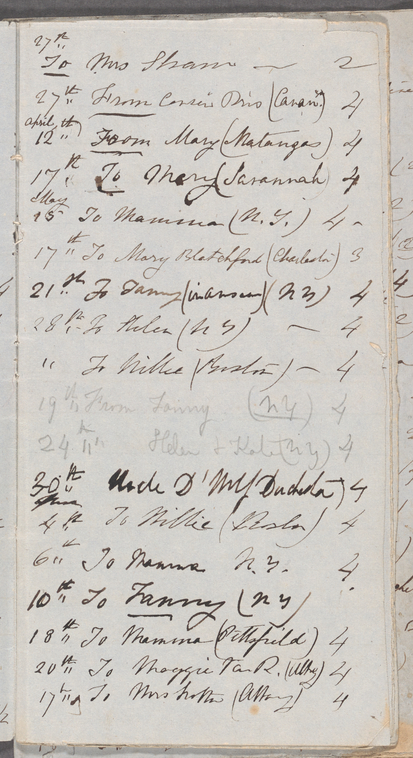 27th
To Mrs Sham — 2
27th From Cousin (Cavan.) 4
April
12th From Mary (Matangas) 4
17th To Mary (Savannah) 4
May
15 To Mamma (N.Y.) 4 -
17th To Mary Blatchford (Charleston) 3
21st To Fanny (inanswer) (NY) 4
28th To Helen (NY) — 4
" To Willie (Boston) — 4
19th From Fanny (NY) 4
24th Helen & Kate (NY) 4
30th Uncle D' 4
4th To Willie (Boston) 4
6th To Mamma N.Y. 4
10th To Fanny (NY)
18th To Mamma (Pittsfield) 4
20th To Maggie Van R. (Alby) 4
17th To Mrs (Albany) 4